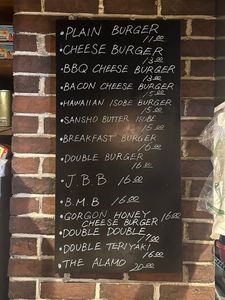 • PLAIN BURGER
11.00
• CHEESE BURGER
13.00
• BBQ CHEESE BURGER
13.00
• BACON CHEESE BURGER
15.00
• HAWAIIAN ISOBE BURGER
15.00
• SANSHO BUTTER ISOBE
15.00
• BREAKFAST BURGER
16.00
• DOUBLE BURGER
16.00
• J.B.B 16.00
• B.M.B 16.00
• GORGON HONEY 16.00
CHEESE BURGER
• DOUBLE DOUBLE
17.00
• DOUBLE TERIYAKI
16.00
• THE ALAMO 20.00